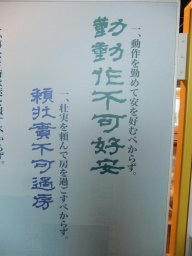 一、動作を勤めて安を好むべからず。
勤動作不可好安
一、壮実を頼んで房を過ごすべからず。
頼壮實不可過房